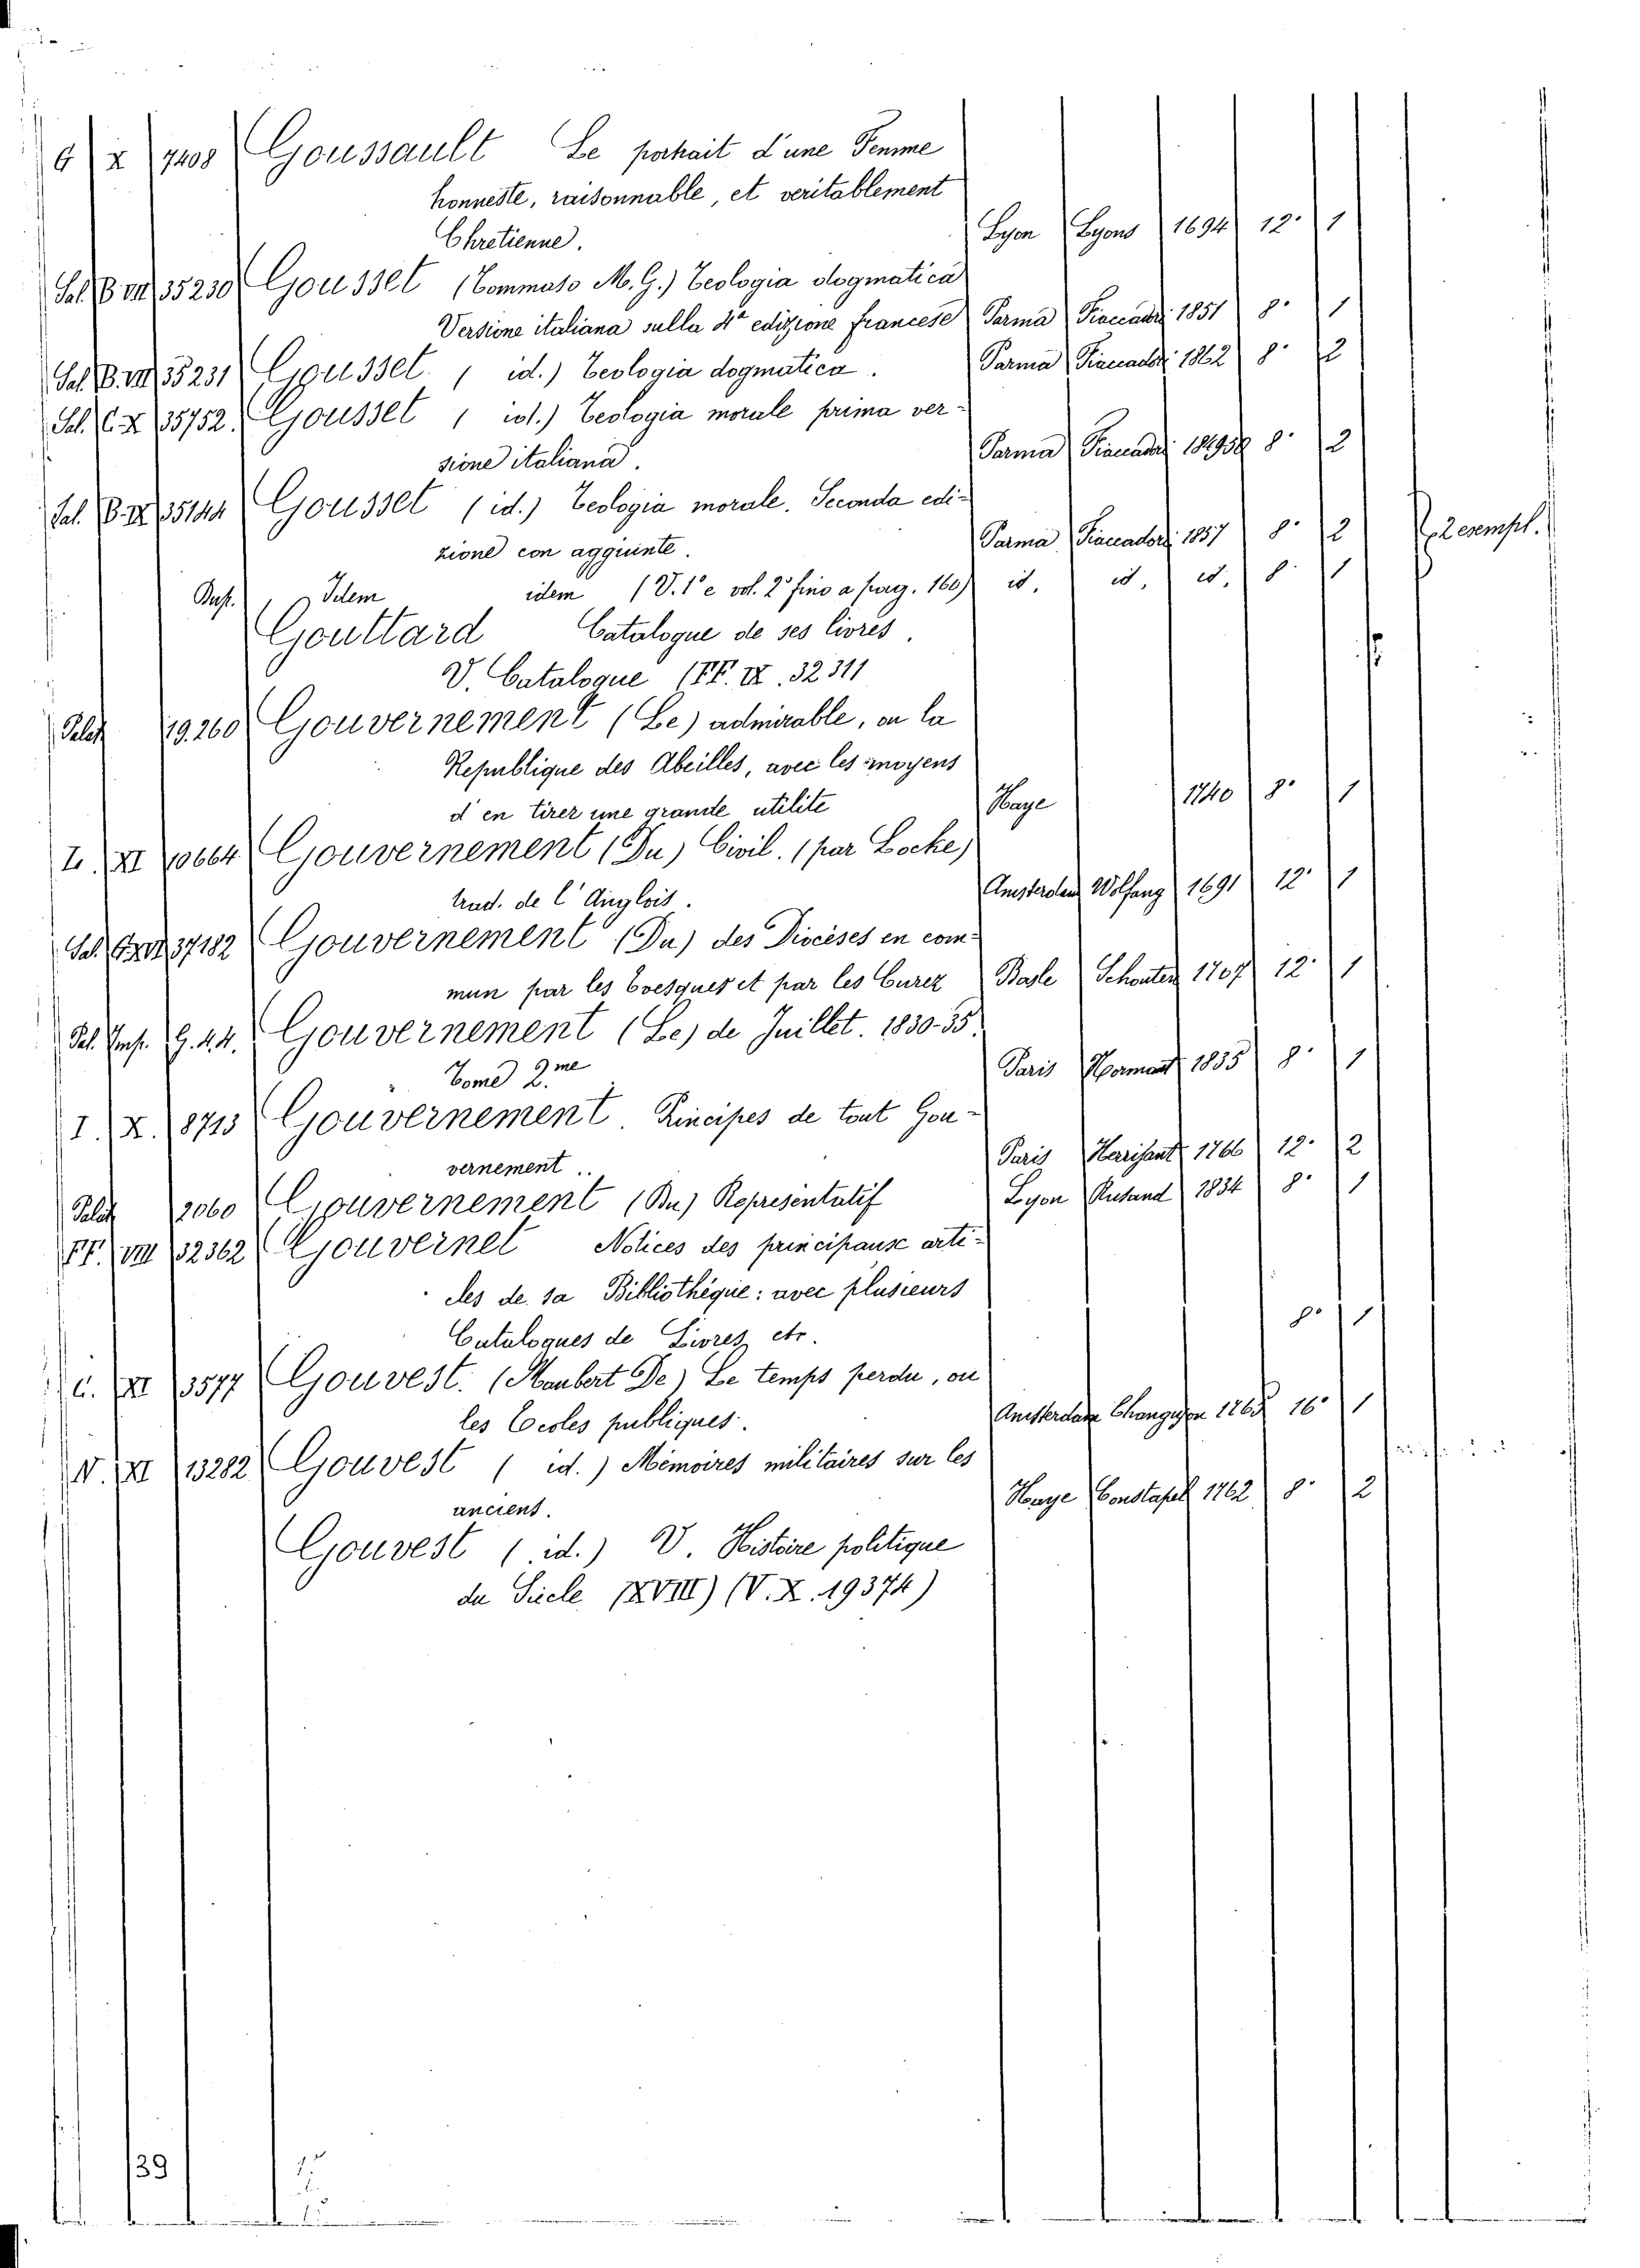 G X 7408 Goussault Le portrait d'une Femme
honneste, raisonnable, et veritablement
Chretienne. Lyon Lyons 1694 12° 1
Sal. B. VII 35230 Gousset (Tommaso M. G.) Teologia dogmatica
Versione italiana sulla 4a edizione francese Parma Fiaccadori 1851 8° 1
Sal. B. VII 35231 Gousset ( id.) Teologia dogmatica. Parma Fiaccadori 1862 8° 2
Sal. C. X 35752. Gousset ( id.) Teologia morale prima ver-
sione italiana. Parma Fiaccadori 8° 2
Sal. B. IX 35144 Gousset (id.) Teologia morale. Seconda edi-
zione con aggiunte. Parma Fiaccadori 1857 8° 2 2 esempl.
Dup. Idem idem (V. 1° e vol. 2° fino a pag. 160) id. id. id. 8° 1
Gouttard Catalogue de ses livres.
V. Catalogue (FF. IX. 32311
Palat 19.260 Gouvernement (Le) admirable, ou la
Republique des Abeilles, avec les moyens
d'en tirer une grande utilite Haye 1740 8° 1
L. XI 10664 Gouvernement (Du) Civil. (par Locke)
trad. de l'Anglois. Amsterdam Wolfang 1691 12° 1
Sal. 37182 Gouvernement (Du) des Diocéses en com-
mun par les Evesques et par les Curez Basle Schouten 1707 12° 1
Pal. Imp. G. 44. Gouvernement (Le) de Juillet. 1830-35.
Tome 2.me Paris Normant 1835 8° 1
I. X. 8713 Gouvernement. Principes de tout Gou-
vernement.. Paris Herisant 1766 12° 2
Palat 2060 Gouvernement (Du) Representatif Lyon Rusand 1834 8° 1
FF. VIII 32362 Gouvernet Notices des principaux arti-
cles de sa Bibliothèque: avec plusieurs
Catalogues de Livres, etc. 8° 1
C. XI 3577 Gouvest. (Maubert De) Le temps perdu, ou
les Ecoles publiques. Amsterdam Changuyon 1765 16° 1
N. XI 13282 Gouvest ( id.) Mémoires militaires sur les
anciens. Haye Constapel 1762 8° 2
Gouvest ( id.) V. Histoire politique
du Siecle (XVIII) (V. X. 19374)
139